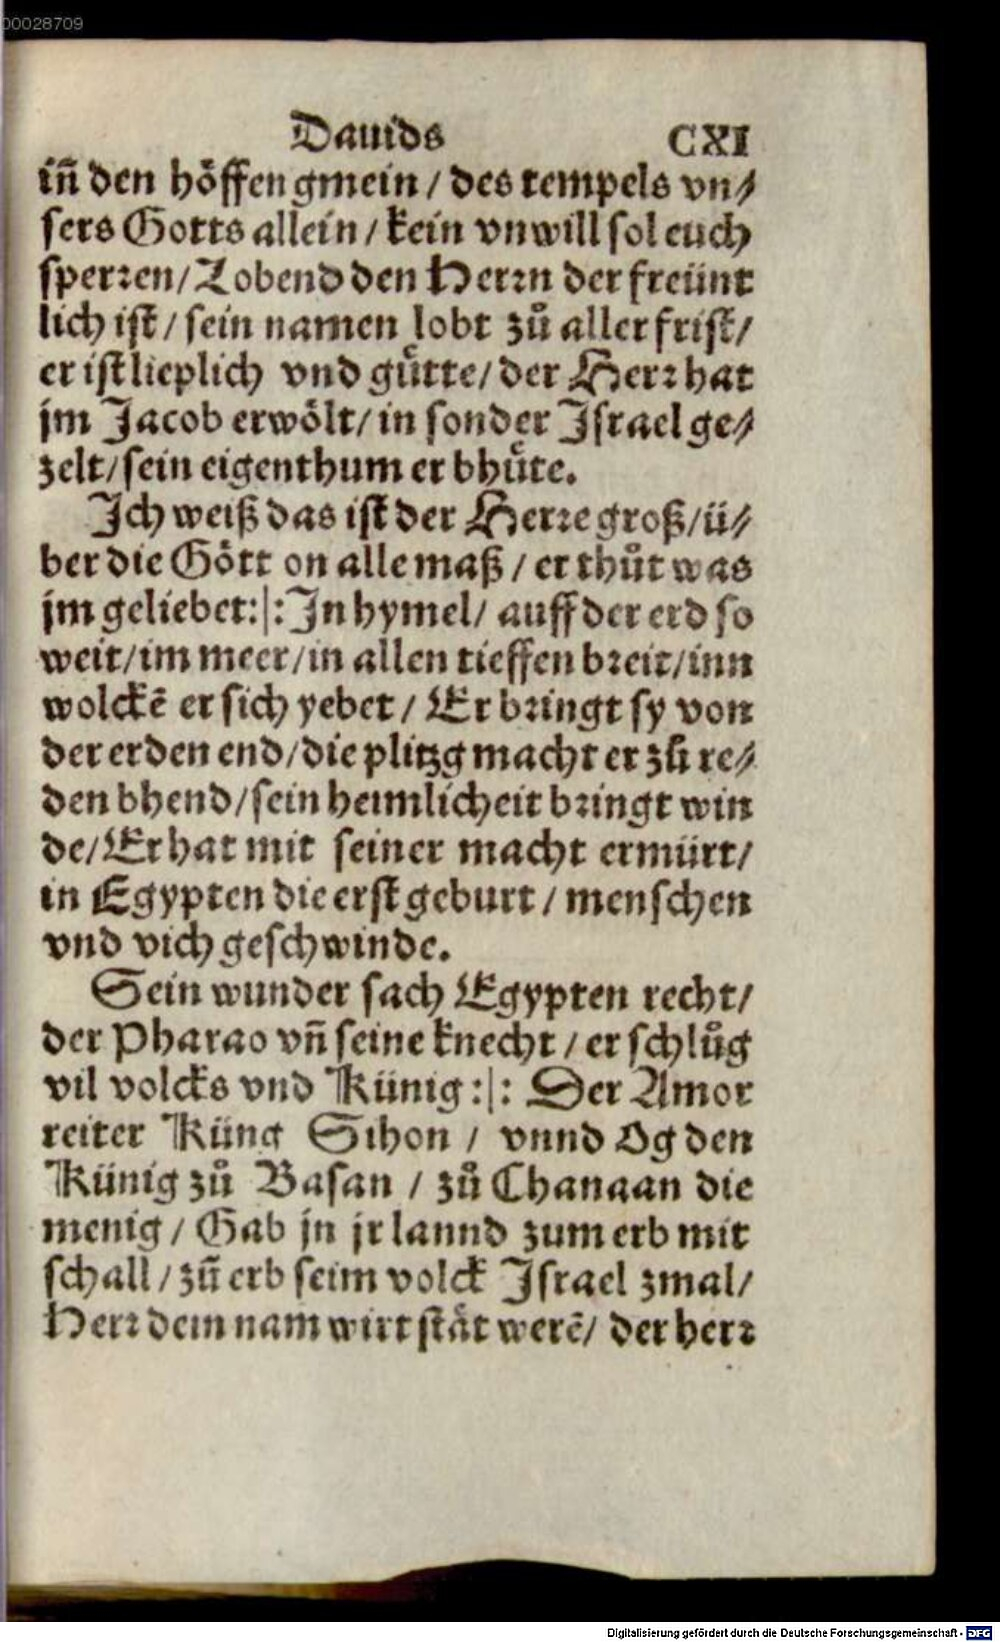 00028709
Dauids CXI
iñ den hoͤffen gmein / des tempels vn⸗
sers Gotts allein / kein vnwill sol euch
sperꝛen / Lobend den Herꝛn der freünt
lich ist / sein namen lobt zů aller frist /
er ist lieplich vnd guͤtte / der Herꝛ hat
jm Jacob erwoͤlt / in sonder Israel ge⸗
zelt / sein eigenthum er bhuͤte.
Jch weiß das ist der Herꝛe groß / ü⸗
ber die Goͤtt on alle maß / er thůt was
jm geliebet :|: Jn hymel / auff der erd so
weit / im meer / in allen tieffen bꝛeit / inn
wolckē er sich yebet / Er bꝛingt sy von
der erden end / die plitzg macht er zů re⸗
den bhend / sein heimlicheit bꝛingt win
de / Er hat mit seiner macht ermürt /
in Egypten die erst geburt / menschen
vnd vich geschwinde.
Sein wunder sach Egypten recht /
der Pharao vñ seine knecht / er schlůg
vil volcks vnd Künig :|: Der Amor
reiter Küng Sihon / vnnd Og den
Künig zů Basan / zů Chanaan die
menig / Gab jn jr lannd zum erb mit
schall / zū erb seim volck Israel zmal /
Herꝛ dein nam wirt staͤt werē / der herꝛ
Digitalisierung gefördert durch die Deutsche Forschungsgemeinschaft - DFG